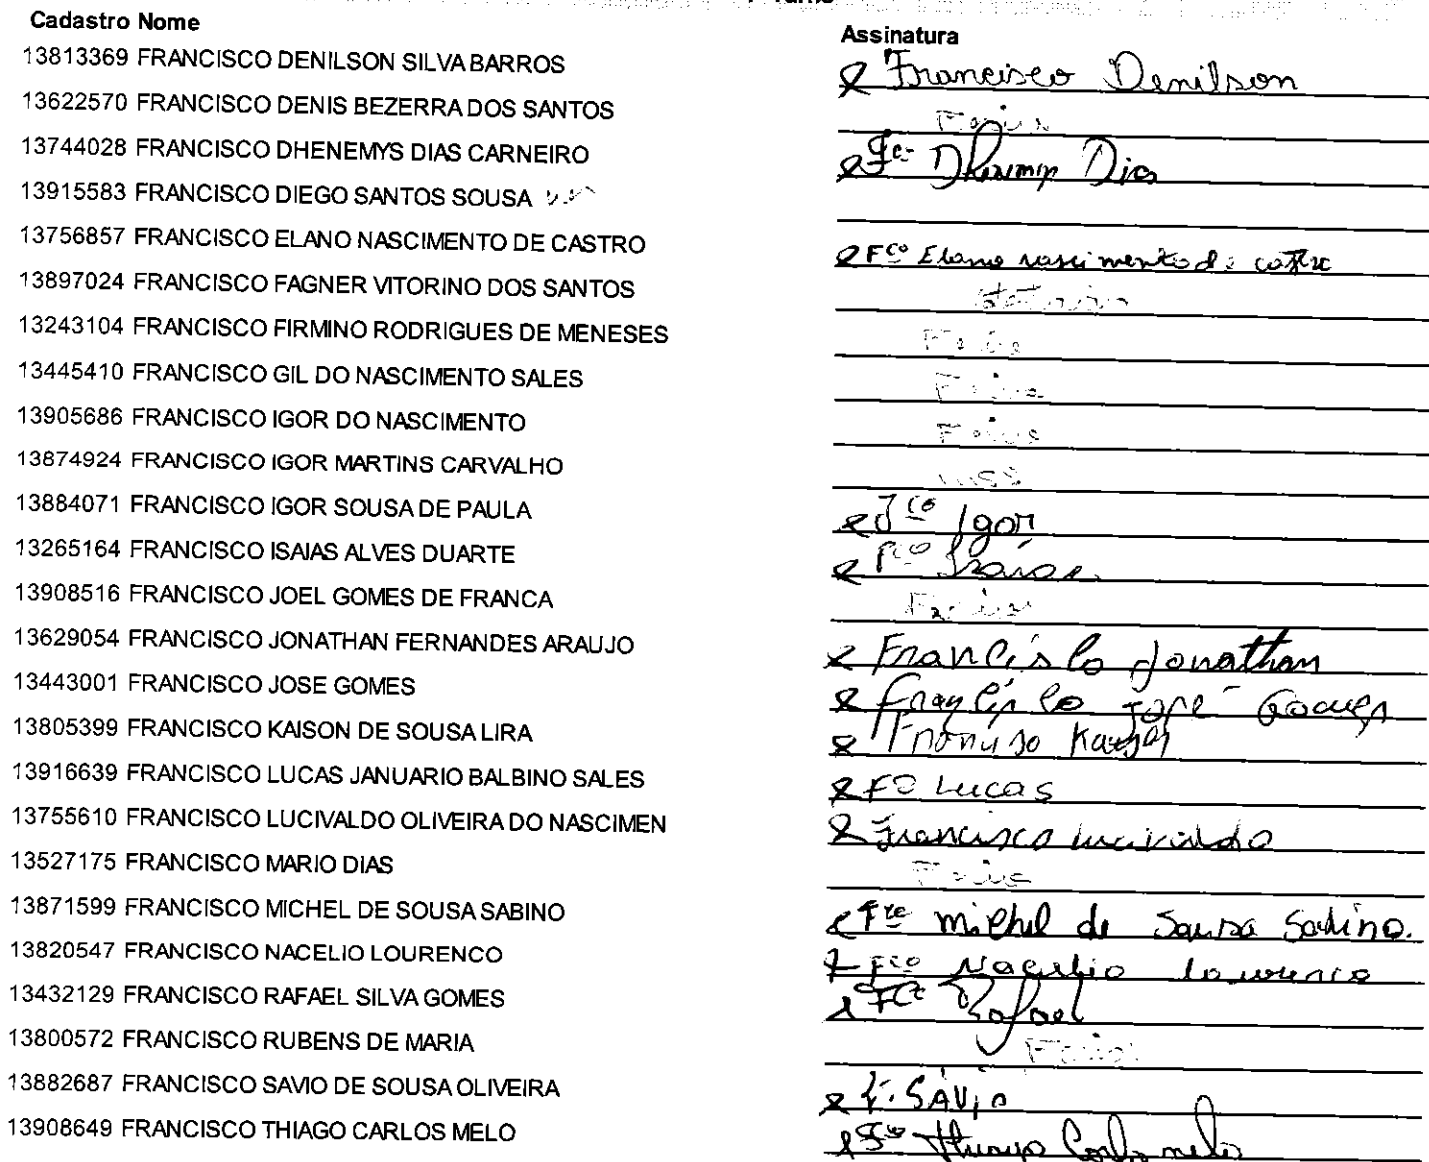 Cadastro Nome Assinatura
13813369 FRANCISCO DENILSON SILVA BARROS Francisco Denilson
13622570 FRANCISCO DENIS BEZERRA DOS SANTOS Ferias
13744028 FRANCISCO DHENEMYS DIAS CARNEIRO Dias
13915583 FRANCISCO DIEGO SANTOS SOUSA
13756857 FRANCISCO ELANO NASCIMENTO DE CASTRO Fco Elano nascimento de castro
13897024 FRANCISCO FAGNER VITORINO DOS SANTOS
13243104 FRANCISCO FIRMINO RODRIGUES DE MENESES Ferias
13445410 FRANCISCO GIL DO NASCIMENTO SALES Ferias
13905686 FRANCISCO IGOR DO NASCIMENTO Ferias
13874924 FRANCISCO IGOR MARTINS CARVALHO INSS
13884071 FRANCISCO IGOR SOUSA DE PAULA Fco Igor
13265164 FRANCISCO ISAIAS ALVES DUARTE Fco Isaias
13908516 FRANCISCO JOEL GOMES DE FRANCA Ferias
13629054 FRANCISCO JONATHAN FERNANDES ARAUJO Francisco Jonathan
13443001 FRANCISCO JOSE GOMES Francisco José Gomes
13805399 FRANCISCO KAISON DE SOUSA LIRA Francisco
13916639 FRANCISCO LUCAS JANUARIO BALBINO SALES Fo Lucas
13755610 FRANCISCO LUCIVALDO OLIVEIRA DO NASCIMEN Francisco lucivaldo
13527175 FRANCISCO MARIO DIAS Ferias
13871599 FRANCISCO MICHEL DE SOUSA SABINO Fco michel de Sousa Sabino.
13820547 FRANCISCO NACELIO LOURENCO Fco Nacelio lourenco
13432129 FRANCISCO RAFAEL SILVA GOMES Fco Rafael
13800572 FRANCISCO RUBENS DE MARIA Ferias
13882687 FRANCISCO SAVIO DE SOUSA OLIVEIRA F. SÁVIO
13908649 FRANCISCO THIAGO CARLOS MELO Thiago Carlos melo